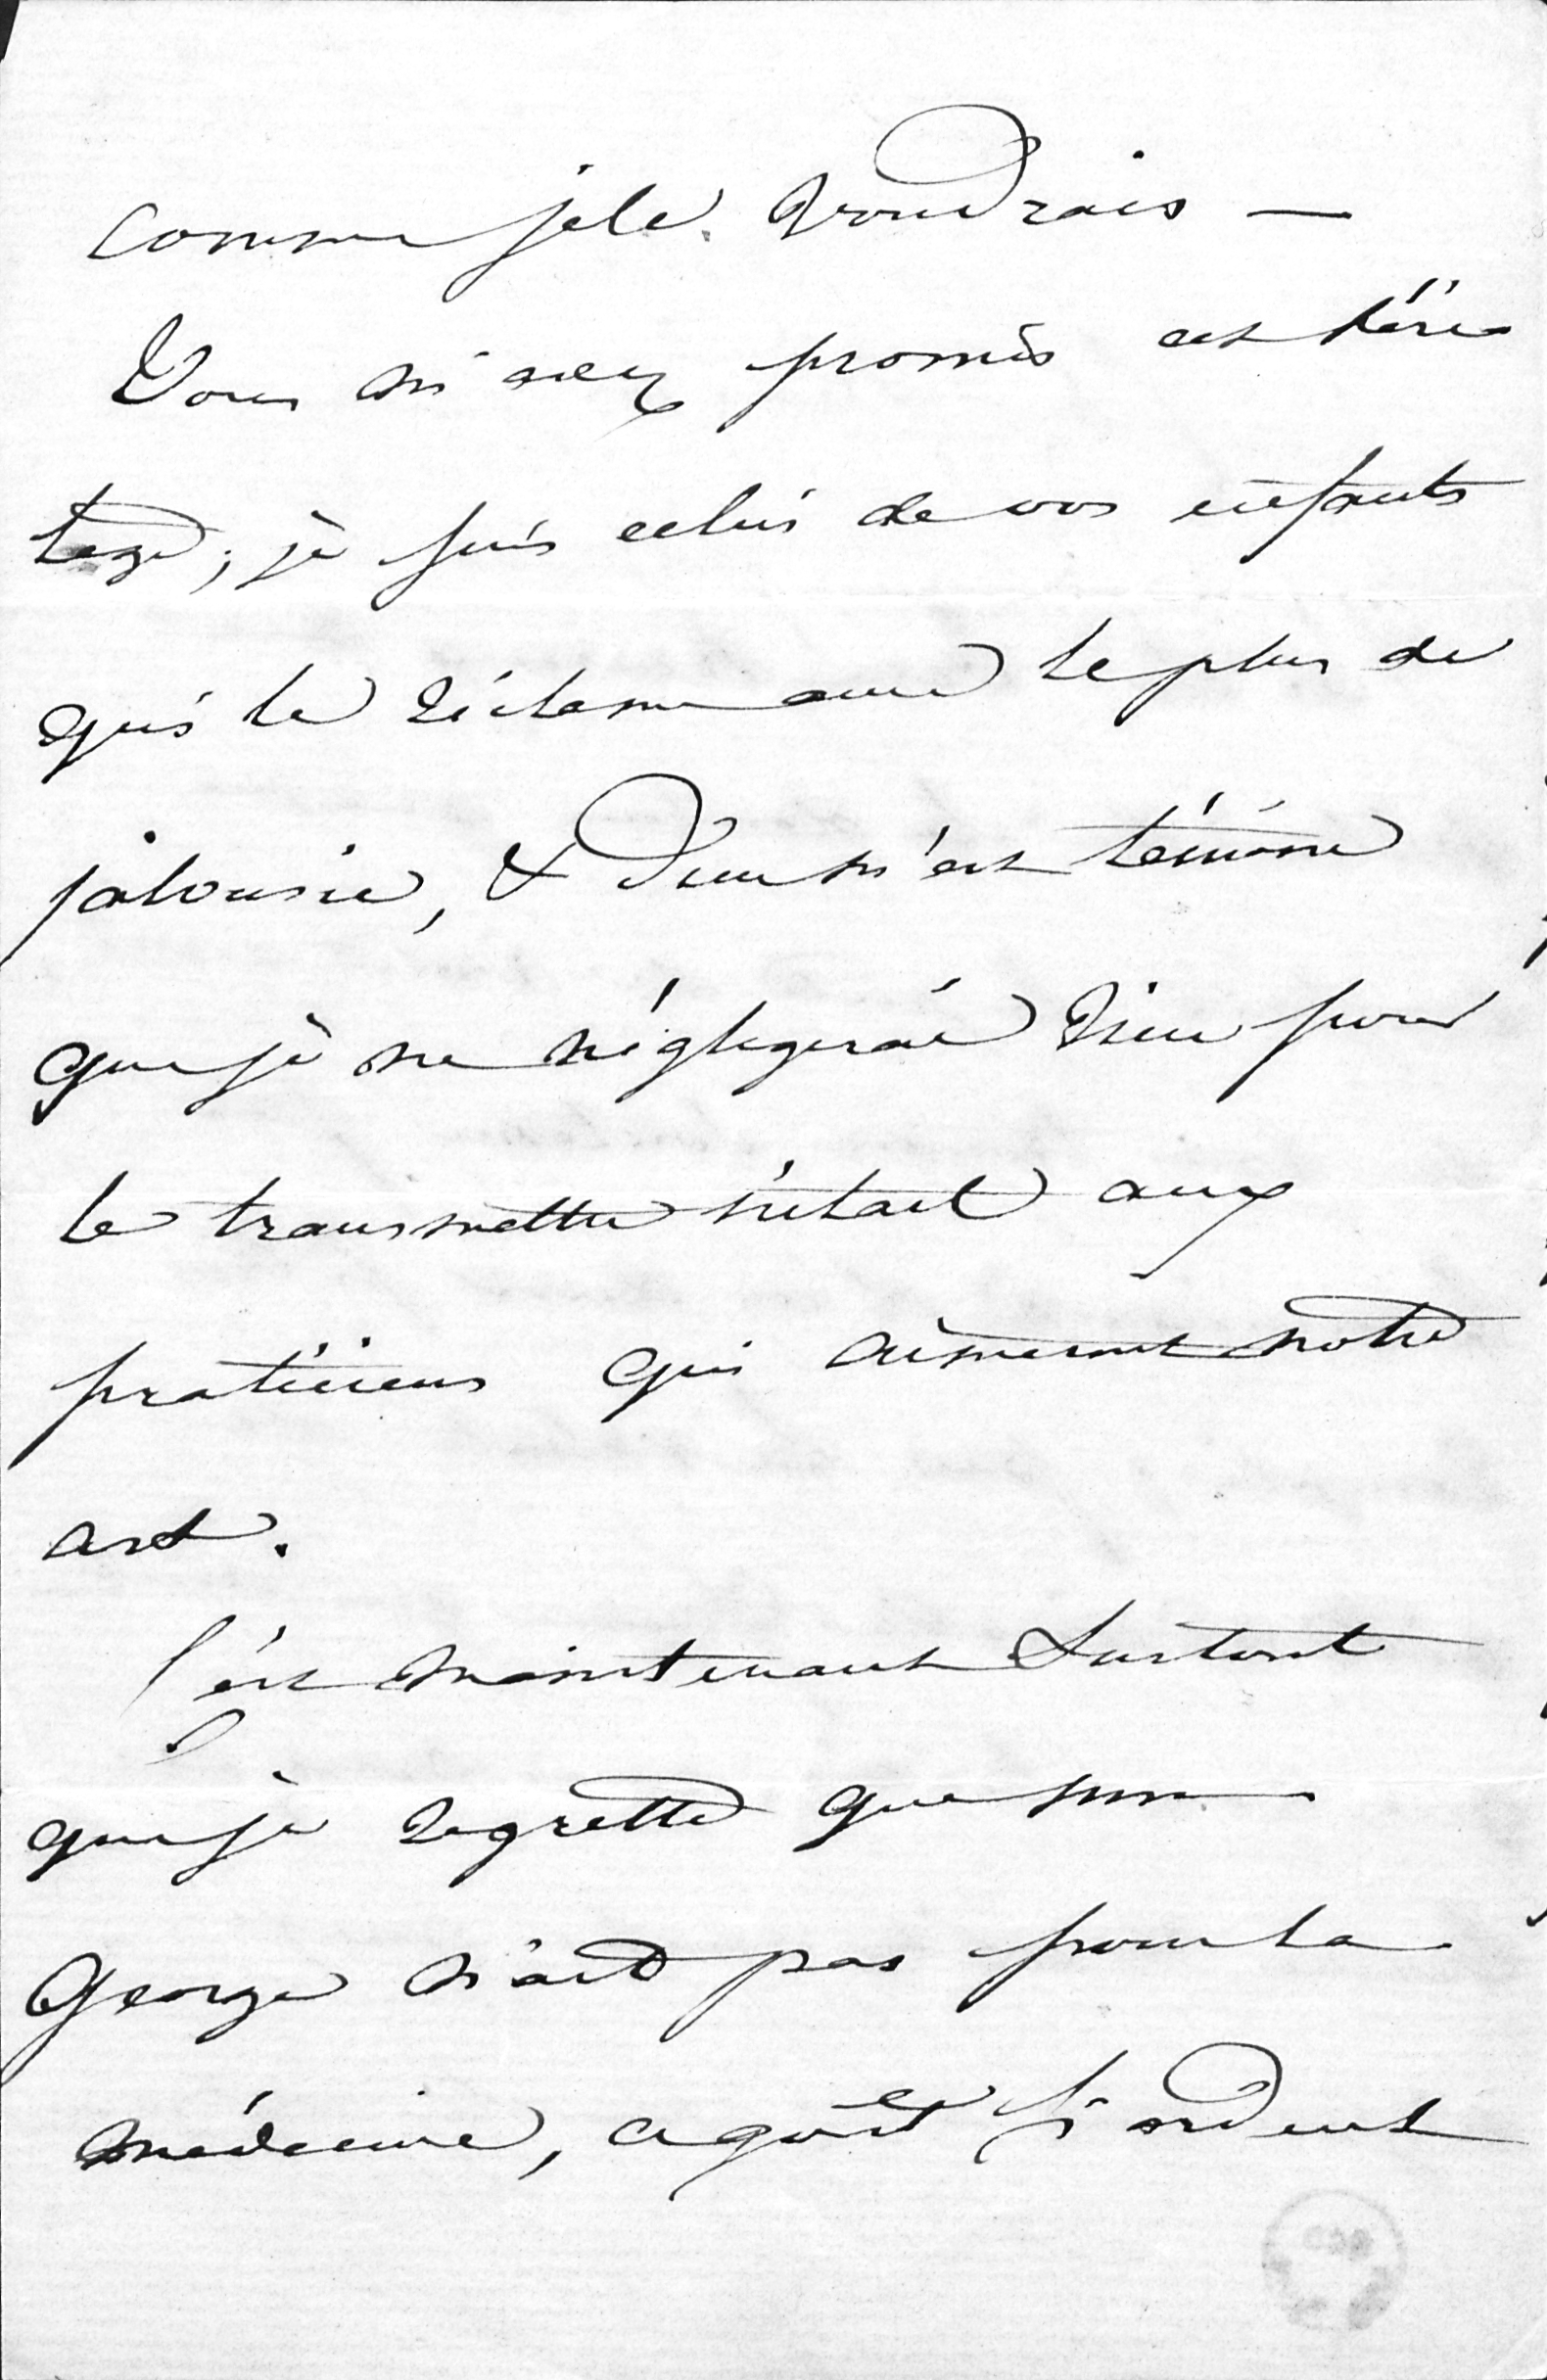 comme je le voudrais —
Vous m'avez promis cet héri
tage, je suis celui de vos enfants
qui le réclame avec le plus de
jalousie, & Dieu m'est témoin
que je ne négligerai rien pour
le transmettre intact aux
praticiens qui aimeront notre
art.
C'est maintenant surtout
que je regrette que mon
George n'ait pas pour la
médecine, ce goût si ardent